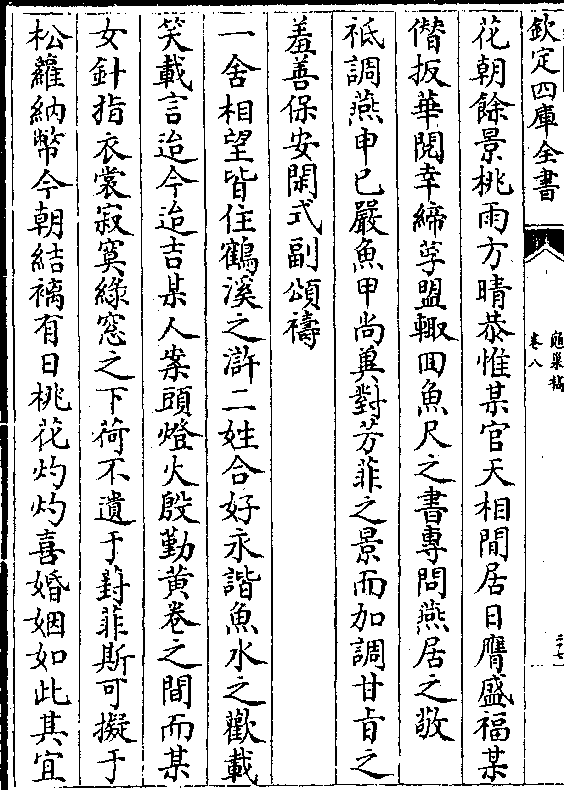 欽定四庫全書
龜巢稿
卷八
二十七
花朝餘景桃雨方晴恭惟某官天相閒居日膺盛福某
偕扳華閱幸締孚盟輙回魚尺之書專問燕居之敬
祗調燕申已嚴魚甲尚冀對芳菲之景而加調甘旨之
羞善保安閑式副頌禱
一舍相望皆住鶴溪之滸二姓合好永諧魚水之歡載
笑載言迨今迨吉某人案頭燈火殷勤黄卷之間而某
女針指衣裳寂寞綠窓之下荷不遺于葑菲斯可擬于
松蘿納幣今朝結褵有日桃花灼灼喜婚姻如此其宜